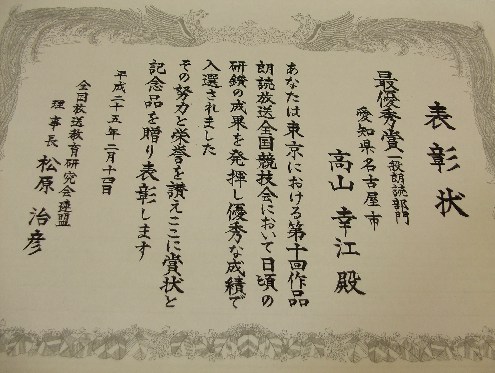 表彰状
最優秀賞 一般朗読部門
愛知県名古屋市
高山 幸江 殿
あなたは東京における第十回作品
朗読放送全国競技会において日頃の
研鑚の成果を発揮し優秀な成績で
入選されました
その努力と栄誉を讃えここに賞状と
記念品を贈り表彰します
平成二十五年二月十四日
全国放送教育研究会連盟
理事長 松原 治彦